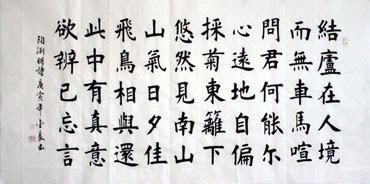 結廬在人境
而無車馬喧
問君何能尔
心遠地自偏
採菊東籬下
悠然見南山
山氣日夕佳
飛鳥相與還
此中有真意
欲辨已忘言
陶渊明詩庚寅年